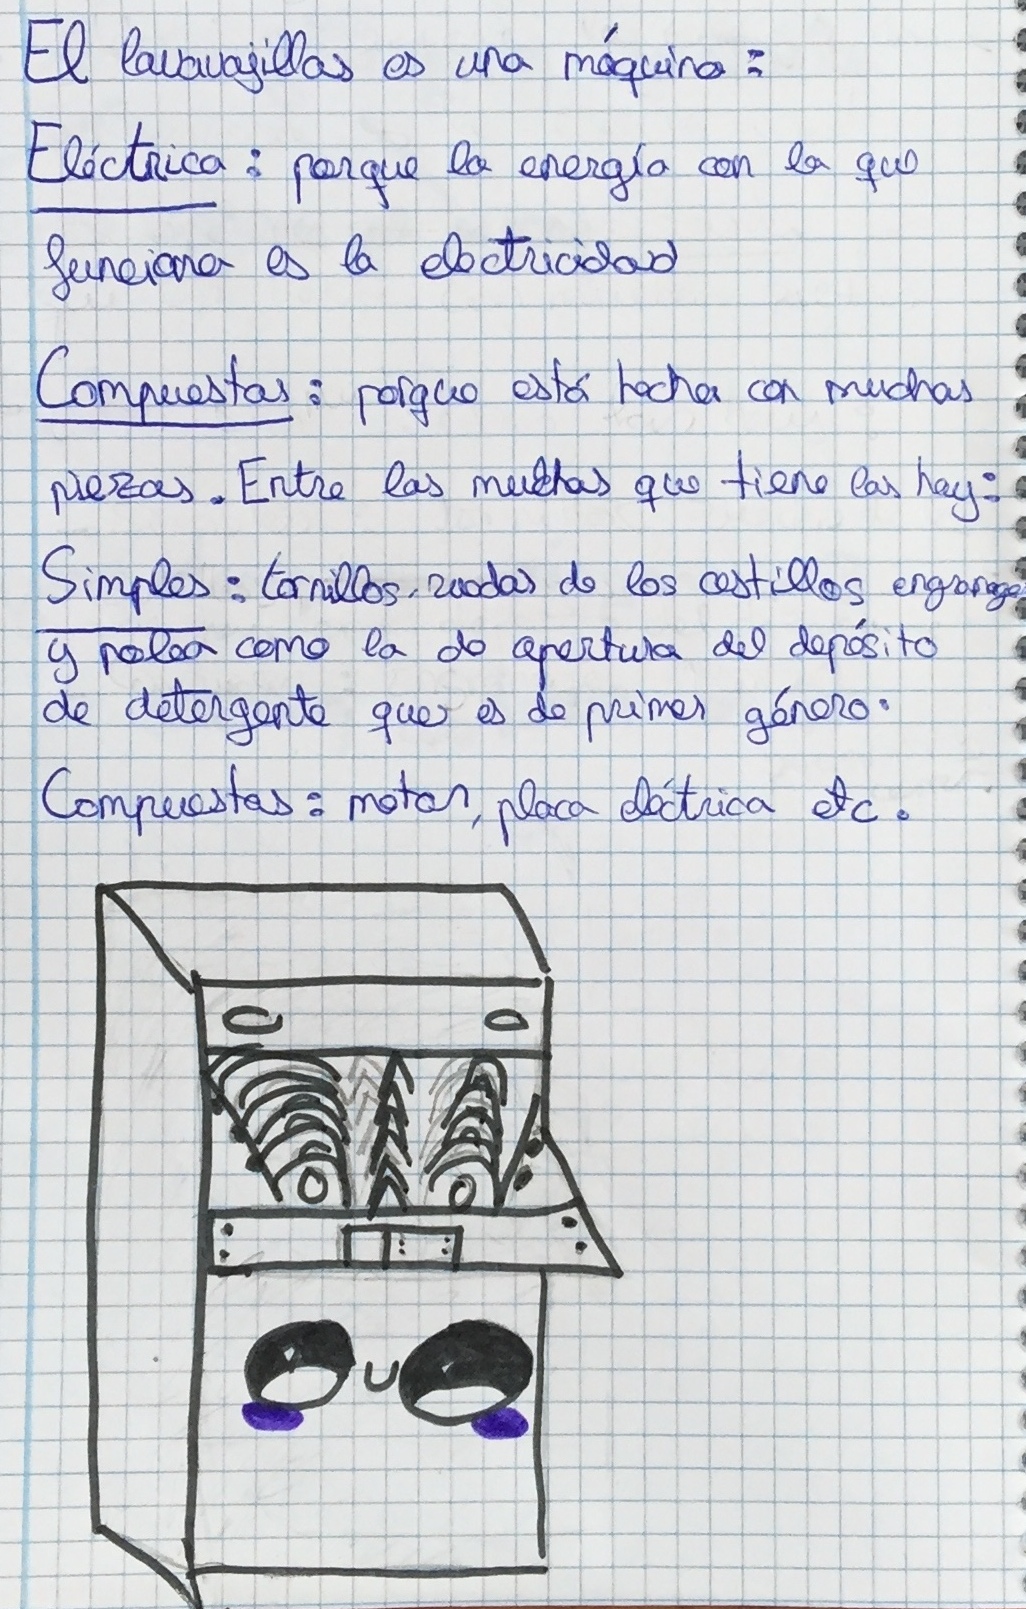 El lavavajillas es una máquina:
Eléctrica: porque la energía con la que
funciona es la electricidad
Compuestas: porque está hecha con muchas
piezas. Entre las muchas que tiene las hay:
Simples: tornillos, ruedas de los cestillos engranaje
y polea como la de apertura del depósito
de detergente que es de primer género.
Compuestas: motor, placa eléctrica etc.